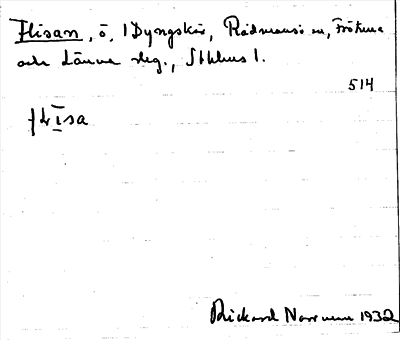 Flisan, ö, i Dyngskär, Rådmansö sn, Frötuna
och Länna skg., Sthlms l.
514
flisa
Rickard Norrman 1932